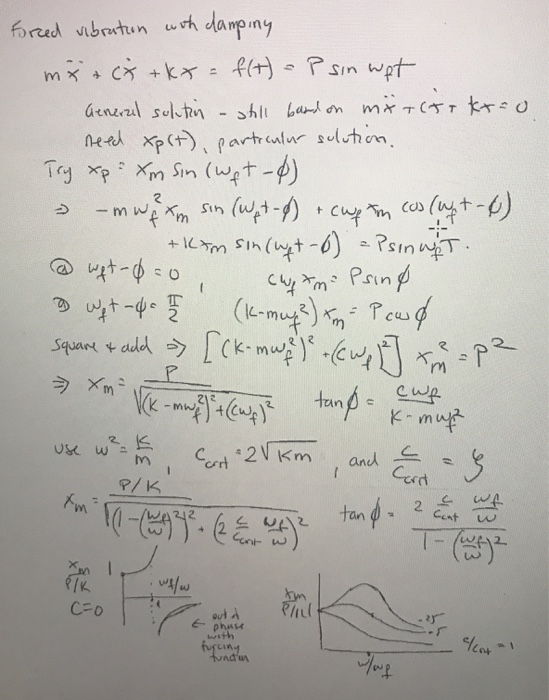 Forced vibration with damping
mẍ + cẋ + kx = f(t) = P sin ω_f t
General solution - still based on mẍ + cẋ + kx = 0
need x_p(t), particular solution.
Try x_p = x_m sin (ω_f t - ϕ)
⇒ - m ω_f² x_m sin (ω_f t - ϕ) + c ω_f x_m cos (ω_f t - ϕ)
+ k x_m sin (ω_f t - ϕ) = P sin ω_f T.
@ ω_f t - ϕ = 0, c ω_f x_m = P sin ϕ
@ ω_f t - ϕ = π/2 (k - m ω_f²) x_m = P cos ϕ
Square + add ⇒ [(k - m ω_f²)² + (c ω_f)²] x_m² = P²
⇒ x_m = P / √((k - m ω_f²)² + (c ω_f)²) tan ϕ = c ω_f / (k - m ω_f²)
use ω² = k/m, C_crit = 2√km, and C/C_crit = ζ
x_m = P/K / √((1 - (ω_f/ω)²)² + (2 C/C_crit ω_f/ω)²) tan ϕ = 2 C/C_crit ω_f/ω / (1 - (ω_f/ω)²)
x_m / P/K 1 ω_f/ω 1
C = 0
out of phase with forcing function
x_m / P/K .25 .5 C/C_crit = 1
ω/ω_f